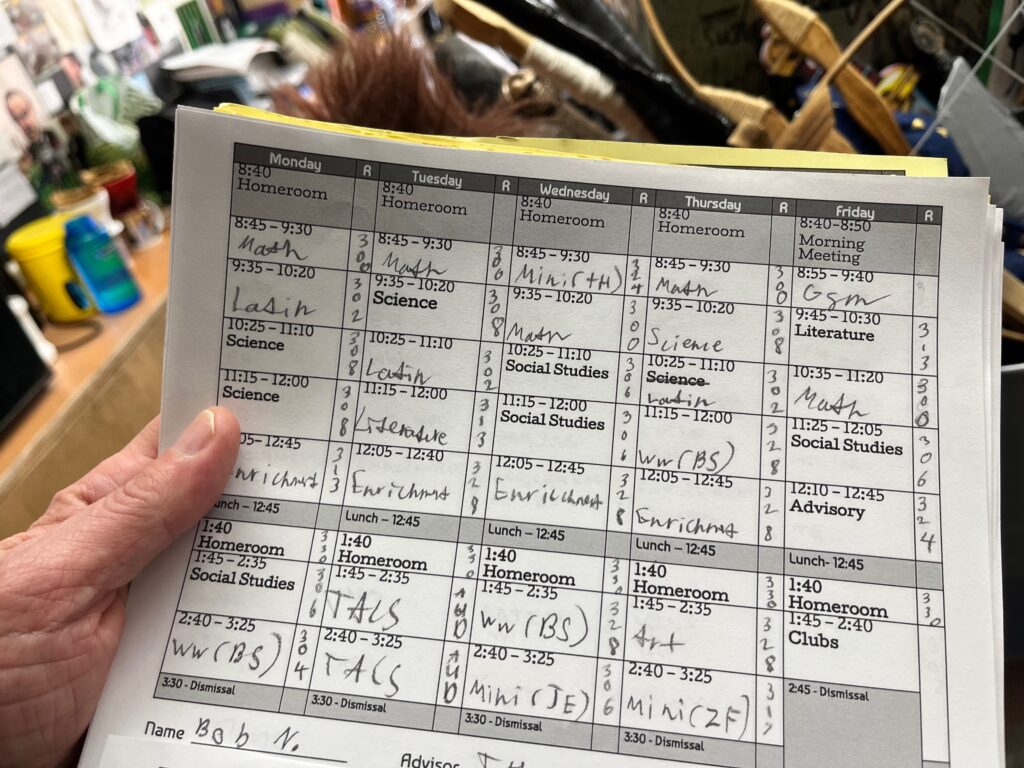 Monday R Tuesday R Wednesday R Thursday R Friday R
8:40 8:40 8:40 8:40 8:40-8:50
Homeroom Homeroom Homeroom Homeroom Morning
Meeting
8:45 – 9:30 300 8:45 – 9:30 300 8:45 – 9:30 324 8:45 – 9:30 300 8:55 – 9:40
Math Math Mini(TH) Math Gym
9:35 – 10:20 302 9:35 – 10:20 308 9:35 – 10:20 300 9:35 – 10:20 308 9:45 – 10:30 313
Latin Science Math Science Literature
10:25 – 11:10 308 10:25 – 11:10 302 10:25 – 11:10 306 10:25 – 11:10 302 10:35 – 11:20 300
Science Latin Social Studies Science Math
Latin
11:15 – 12:00 308 11:15 – 12:00 313 11:15 – 12:00 306 11:15 – 12:00 328 11:25 – 12:05 306
Science Literature Social Studies WW(BS) Social Studies
05– 12:45 313 12:05 – 12:40 328 12:05 – 12:45 328 12:05 – 12:45 328 12:10 – 12:45 324
nrichment Enrichment Enrichment Enrichment Advisory
unch – 12:45 Lunch – 12:45 Lunch – 12:45 Lunch – 12:45 Lunch- 12:45
1:40 330 1:40 330 1:40 330 1:40 330 1:40 330
Homeroom Homeroom Homeroom Homeroom Homeroom
1:45 – 2:35 306 1:45 – 2:35 AUD 1:45 – 2:35 328 1:45 – 2:35 328 1:45 – 2:40
Social Studies TALS WW(BS) Art Clubs
2:40 – 3:25 304 2:40 – 3:25 AUD 2:40 – 3:25 306 2:40 – 3:25 317
WW(BS) TALS Mini(JE) Mini(ZF)
3:30 - Dismissal 3:30 - Dismissal 3:30 - Dismissal 3:30 - Dismissal 2:45 - Dismissal
Name Bob N. Advisor